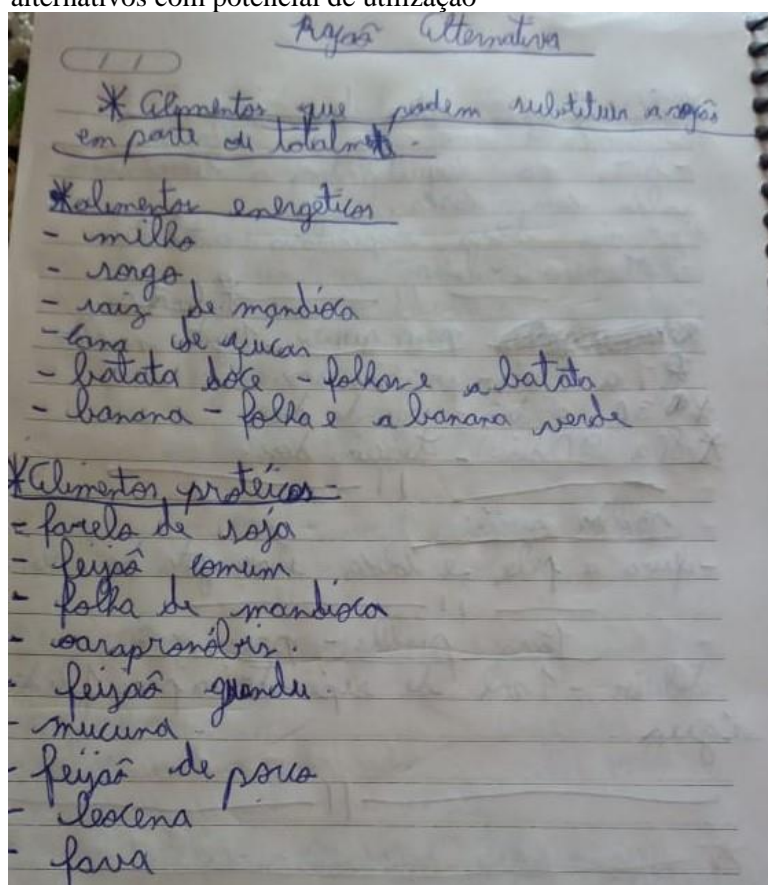 alternativos com potencial de utilização
Ração Alternativa
* Alimentos que podem substituir a ração
em parte ou totalmente.
* alimentos energéticos
- milho
- sorgo
- raiz de mandioca
- cana de açucar
- batata doce - folhas e a batata
- banana - folha e a banana verde
* Alimentos protéicos =
= farelo de soja
- feijão comum
- folha de mandioca
- oarapronólris.
- feijão guandu.
- mucuna
- feijão de porco
- leocena
- fava